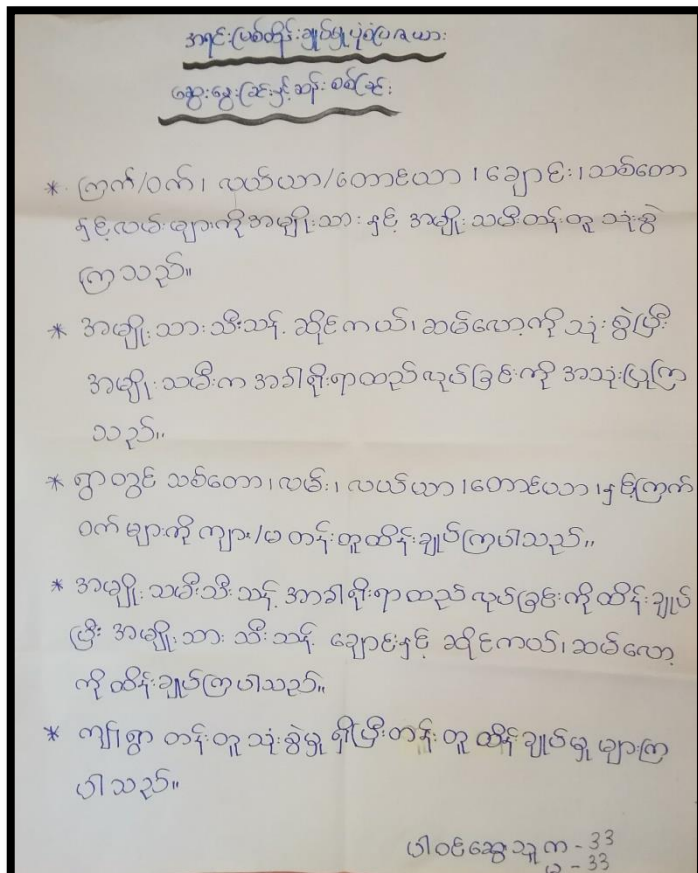 အရင်းမြစ်ထိန်းချုပ်မှုပုံစံပြဇယား
ဆွေးနွေးခြင်းနှင့်ဆန်းစစ်ခြင်း
* ကြက်/ဝက်၊ လယ်ယာ/တောင်ယာ၊ ချောင်း၊ သစ်တော
နှင့်လမ်းများကိုအမျိုးသားနှင့် အမျိုးသမီးတန်းတူသုံးစွဲ
ကြသည်။
* အမျိုးသားသီးသန့် ဆိုင်ကယ်၊ ဆမ်လော့ကိုသုံးစွဲပြီး
အမျိုးသမီးက အခါရိုးရာထည်လုပ်ခြင်းကို အသုံးပြုကြ
သည်။
* ရွာတွင် သစ်တော၊ လမ်း၊ လယ်ယာ၊ တောင်ယာ၊ နှင့်ကြက်
ဝက်များကို ကျား/မ တန်းတူထိန်းချုပ်ကြပါသည်။
* အမျိုးသမီးသီးသန့် အာခါရိုးရာထည်လုပ်ခြင်းကိုထိန်းချုပ်
ပြီး အမျိုးသား သီးသန့် ချောင်းနှင့် ဆိုင်ကယ်၊ ဆမ်လော့
ကိုထိန်းချုပ်ကြပါသည်။
* ကျွန်ုပ်ရွာ တန်းတူသုံးစွဲမှု ရှိပြီးတန်းတူ ထိန်းချုပ်မှု များကြ
ပါသည်။
ပါဝင်ဆွေးသူ က - 33
မ - 33